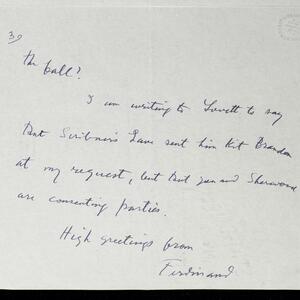 3)
the ball?
I am writing to Lovett to say
that Scribner's have sent him Kit Brandon
at my request, but that you and Sherwood
are consenting parties.
High greetings from
Ferdinand